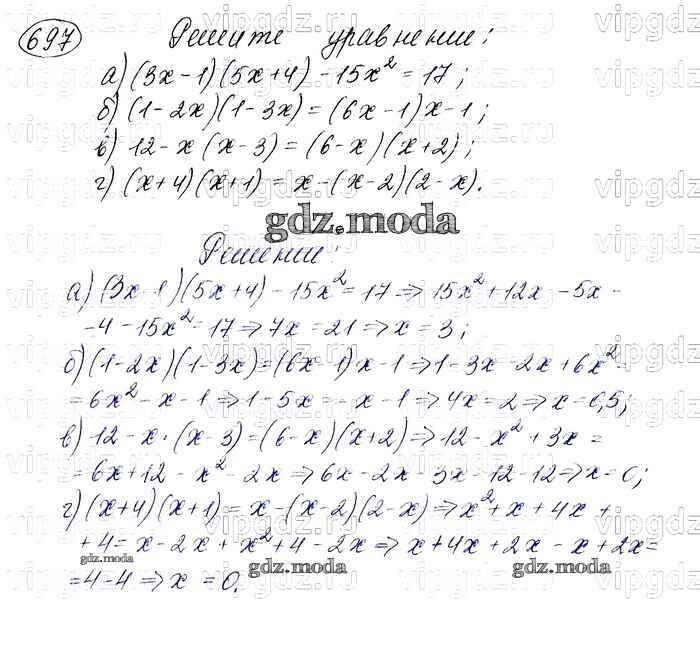 697 Решите уравнение:
а) (3x-1)(5x+4) - 15x² = 17;
б) (1-2x)(1-3x) = (6x-1)x-1;
в) 12-x(x-3) = (6-x)(x+2);
г) (x+4)(x+1) = x-(x-2)(2-x).
gdz.moda
Решение:
а) (3x-1)(5x+4) - 15x² = 17 ⇒ 15x² + 12x - 5x -
- 4 - 15x² = 17 ⇒ 7x = 21 ⇒ x = 3;
б) (1-2x)(1-3x) = (6x-1)x-1 ⇒ 1-3x-2x+6x² =
= 6x² - x - 1 ⇒ 1-5x = -x-1 ⇒ 4x = 2 ⇒ x = 0,5;
в) 12-x·(x-3) = (6-x)(x+2) ⇒ 12-x²+3x =
= 6x+12-x²-2x ⇒ 6x-2x-3x=12-12 ⇒ x=0;
г) (x+4)(x+1) = x-(x-2)(2-x) ⇒ x²+x+4x+
+4 = x-2x+x²+4-2x ⇒ x+4x+2x-x+2x=
gdz.moda gdz.moda
= 4-4 ⇒ x = 0.
gdz.moda
vipgdz.ru